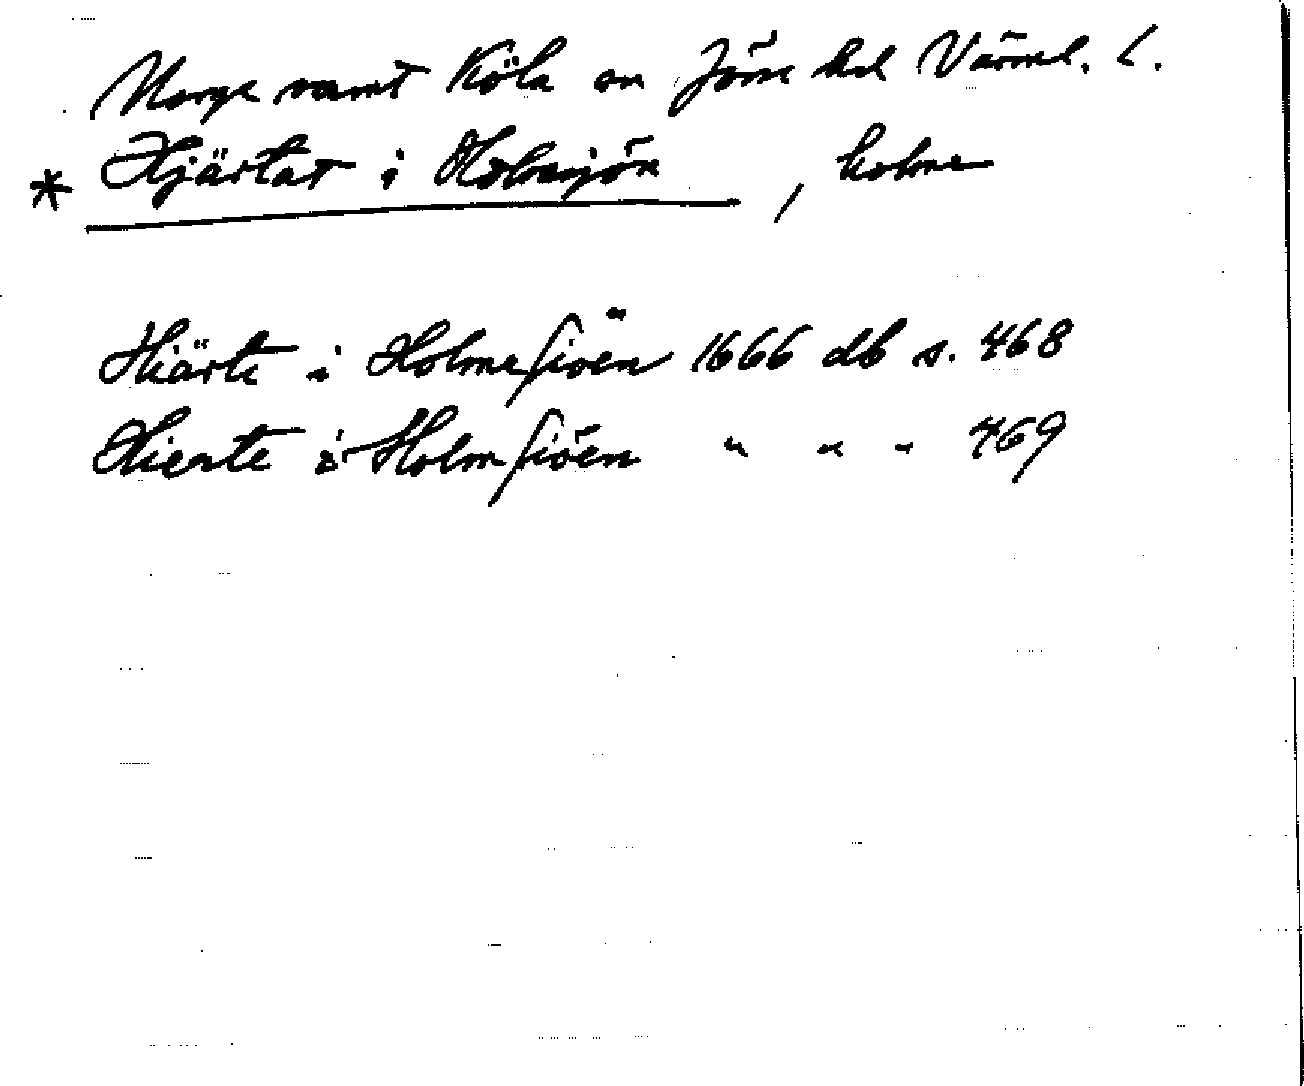 Norge samt Köla sn Jösse hd Värml. l.
* Hjärtat i Holmsjön, holme
Hiärte i Holmesiöen 1666 db s. 468
Hierte i Holmsiöen " " " 469